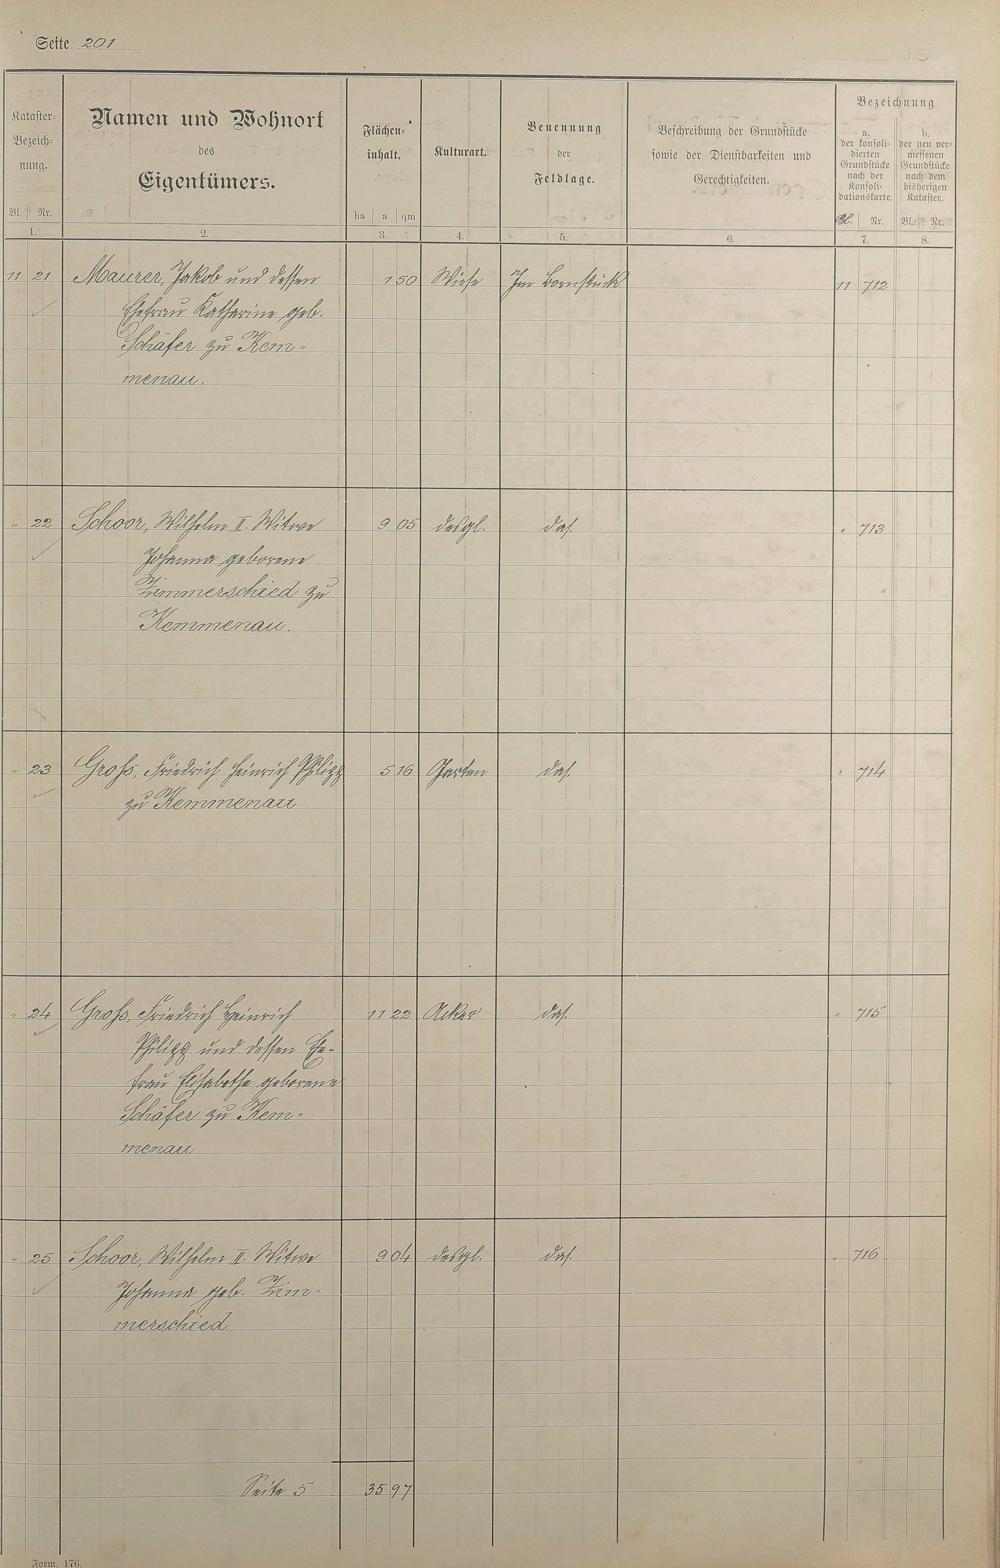 Seite 201
Kataster-
Bezeich-
nung.
Bl. Nr.
1.
Namen und Wohnort
des
Eigentümers.
2.
Flächen-
inhalt.
ha a qm
3.
Kulturart.
4.
Benennung
der
Feldlage.
5.
Beschreibung der Grundstücke
sowie der Dienstbarkeiten und
Gerechtigkeiten.
6.
Bezeichnung
a.
der konsoli-
dierten
Grundstücke
nach der
Konsoli-
dationskarte.
Bl. Nr.
7.
b.
der neu ver-
messenen
Grundstücke
nach dem
bisherigen
Kataster.
Bl. Nr.
8.
11 21 Maurer, Jakob und dessen 1 50 Wiese Im Bornstück 11 712
Ehefrau Katharine geb.
Schäfer zu Kem-
menau.
" 22 Schoor, Wilhelm II. Witwe 9 05 desgl. das. " 713
Johanna geborene
Zimmerschied zu
Kemmenau.
" 23 Groß, Friedrich Heinrich Philipp 5 16 Garten das. " 714
zu Kemmenau
" 24 Groß, Friedrich Heinrich 11 22 Acker das. " 715
Philipp und dessen Ehe-
frau Elisabethe geborene
Schäfer zu Kem-
menau
" 25 Schoor, Wilhelm II. Witwe 9 04 desgl. das. " 716
Johanna geb. Zim-
merschied
Seite 5 35 97
Form. 176.